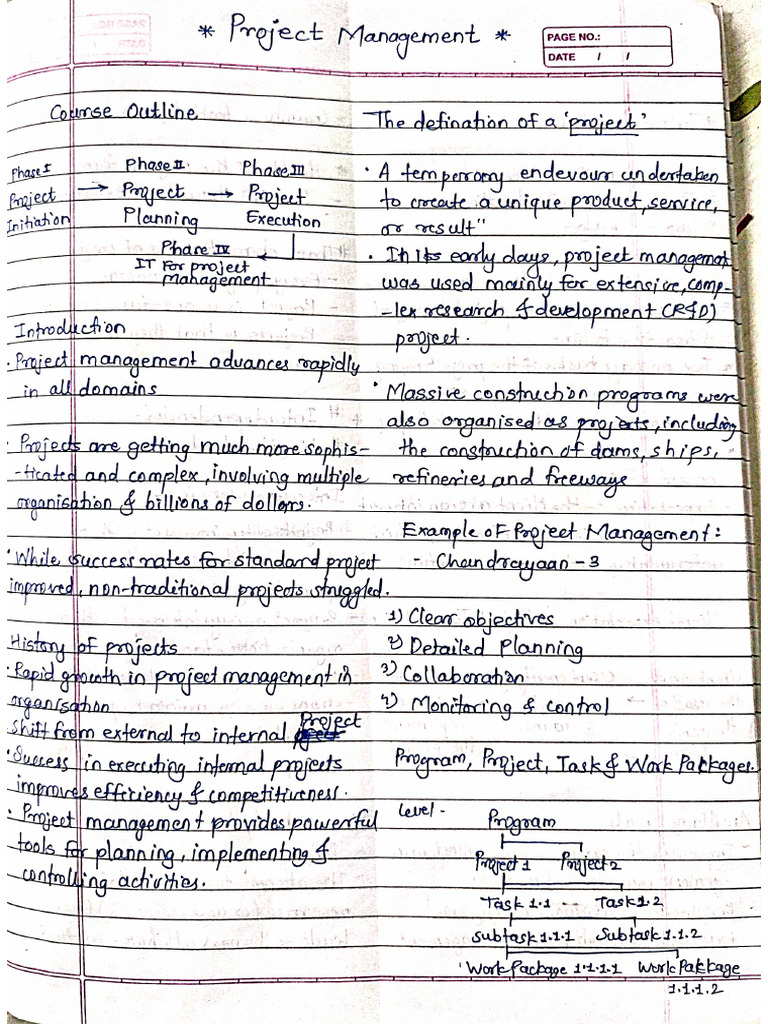 * Project Management *
PAGE NO.:
DATE / /
Course Outline
Phase I Phase II Phase III
Project → Project → Project
Initiation Planning Execution
Phase IV
IT For project
Management
Introduction
· Project management advances rapidly
in all domains
· Projects are getting much more sophis-
-ticated and complex, involving multiple
organisation & billions of dollars.
· While success rates for standard project
improved, non-traditional projects struggled.
History of projects
· Rapid growth in project management in
organisation
shift from external to internal Project
· Success in executing internal projects
improves efficiency & competitiveness.
· Project management provides powerful
tools for planning, implementing &
controlling activities.
The defination of a 'project'
· A temperory endevour undertaken
to create a unique product, service,
or result"
· In its early days, project managemat
was used mainly for extensive, comp-
-lex research & development (R&D)
project.
· Massive construction programs were
also organised as projects, including
the construction of dams, ships,
refineries and freeways
Example of Project Management:
- Chandrayaan - 3
1) Clear objectives
2) Detailed Planning
3) Collaboration
4) Monitoring & control
Program, Project, Task & Work Packages.
Level -
Program
Project 1 Project 2
Task 1.1 -- Task 1.2
Subtask 1.1.1 Subtask 1.1.2
Work Package 1.1.1.1 Work Pakkage
1.1.1.2